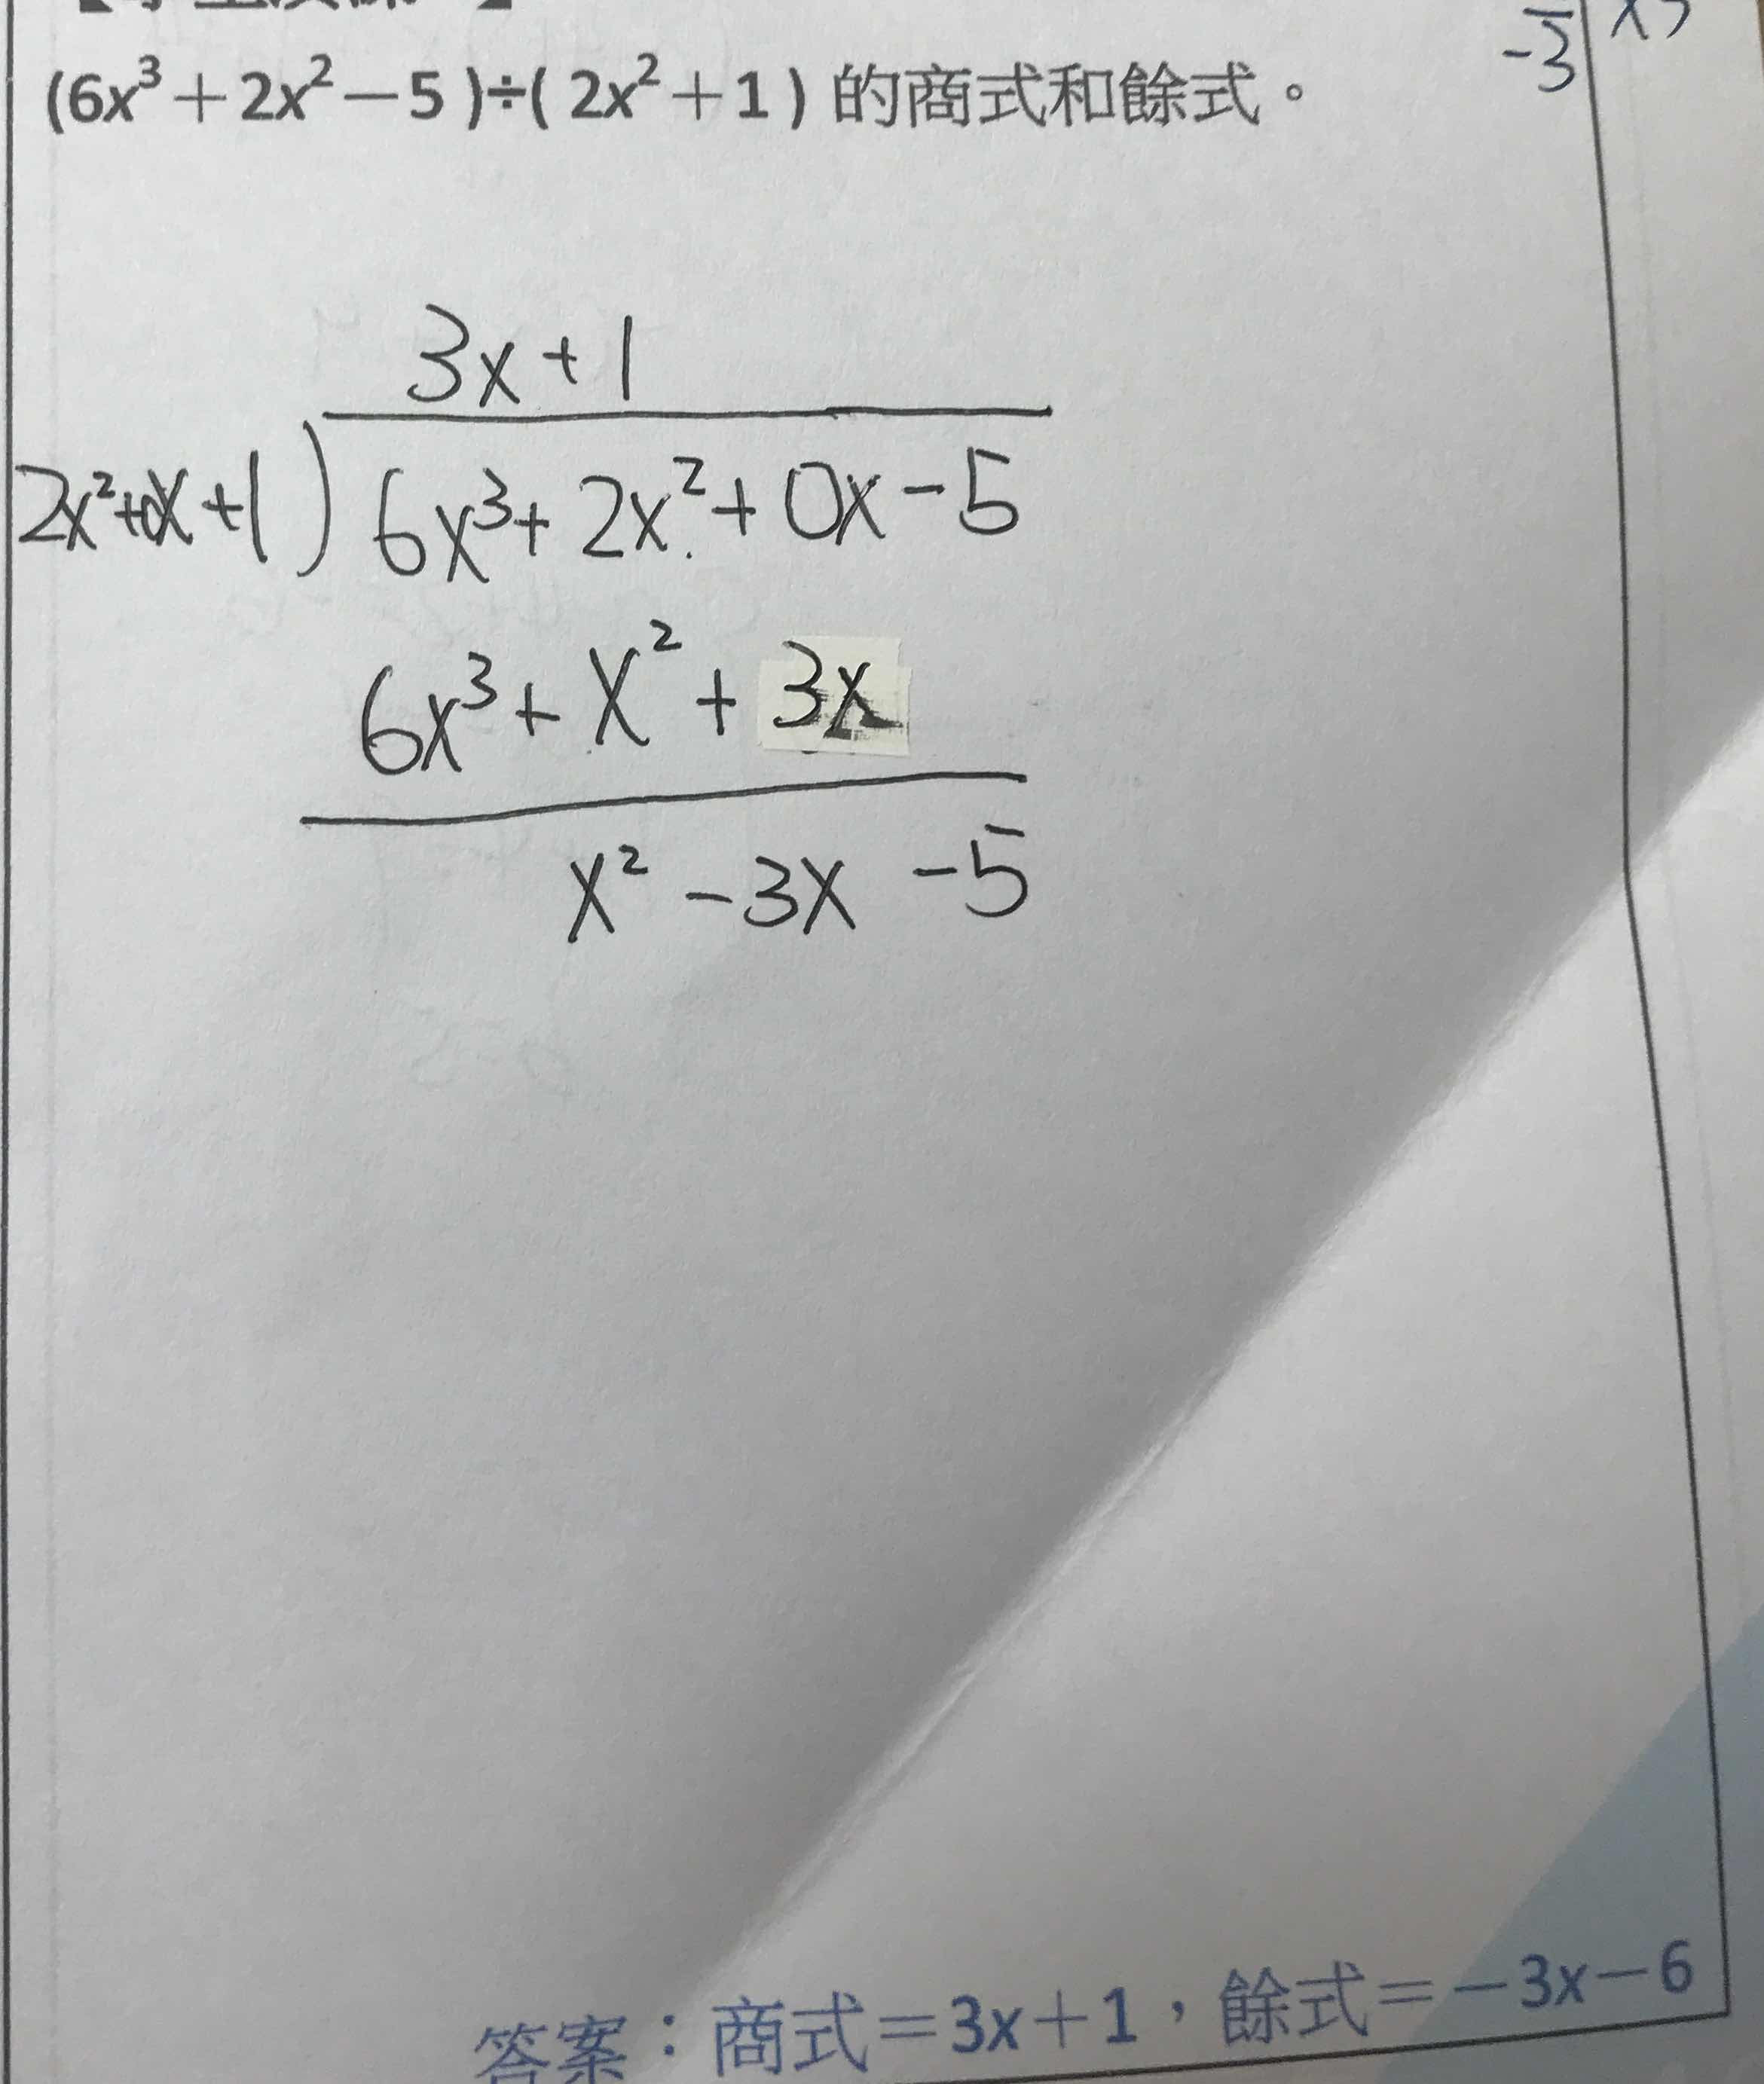 (6x³+2x²－5)÷(2x²+1)的商式和餘式。
-3
3x+1
2x²+0x+1)6x³+2x²+0x-5
6x³+x²+3x
x²-3x-5
答案：商式=3x+1，餘式=－3x－6